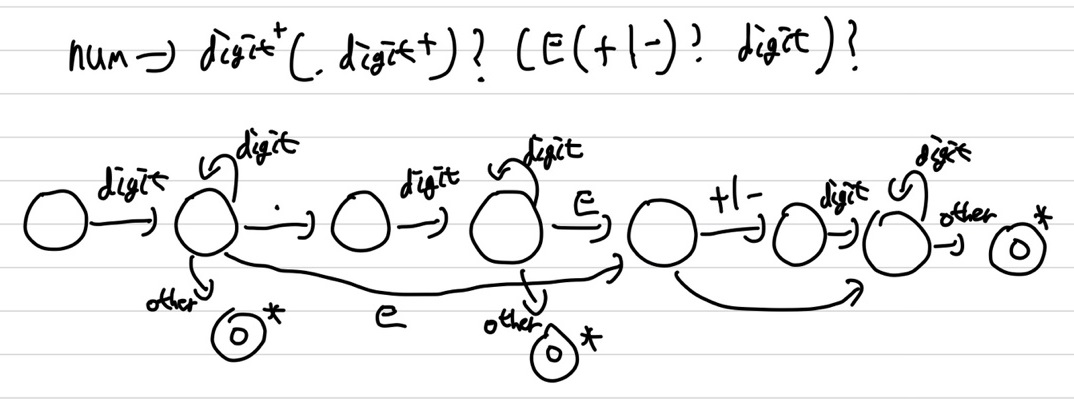 num → digit⁺(. digit⁺)? (E(+|-)? digit)?
digit digit
digit . digit E +|- digit digit
other *
other * E other *